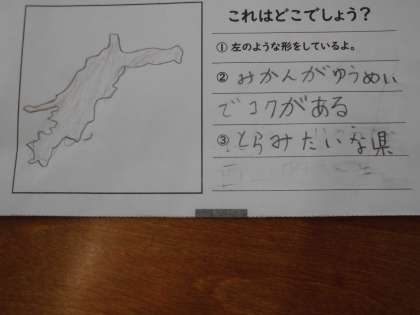 これはどこでしょう？
① 左のような形をしているよ。
② みかんがゆうめい
でコクがある
③ とらみたいな県